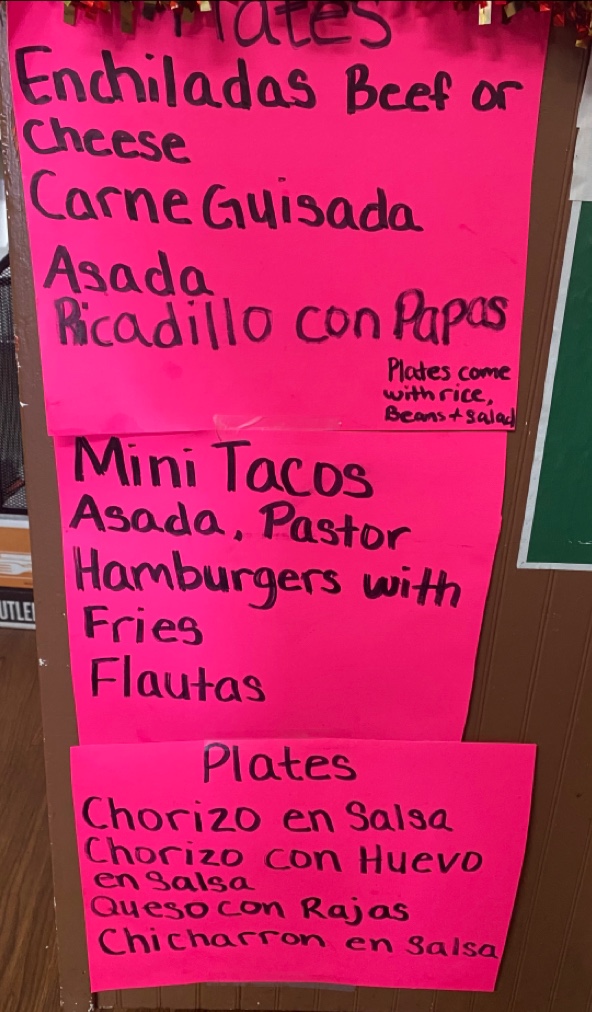 Plates
Enchiladas Beef or
Cheese
Carne Guisada
Asada
Picadillo con Papas
Plates come
with rice,
Beans + Salad
Mini Tacos
Asada, Pastor
Hamburgers with
Fries
Flautas
Plates
Chorizo en Salsa
Chorizo con Huevo
en Salsa
Queso con Rajas
Chicharron en Salsa